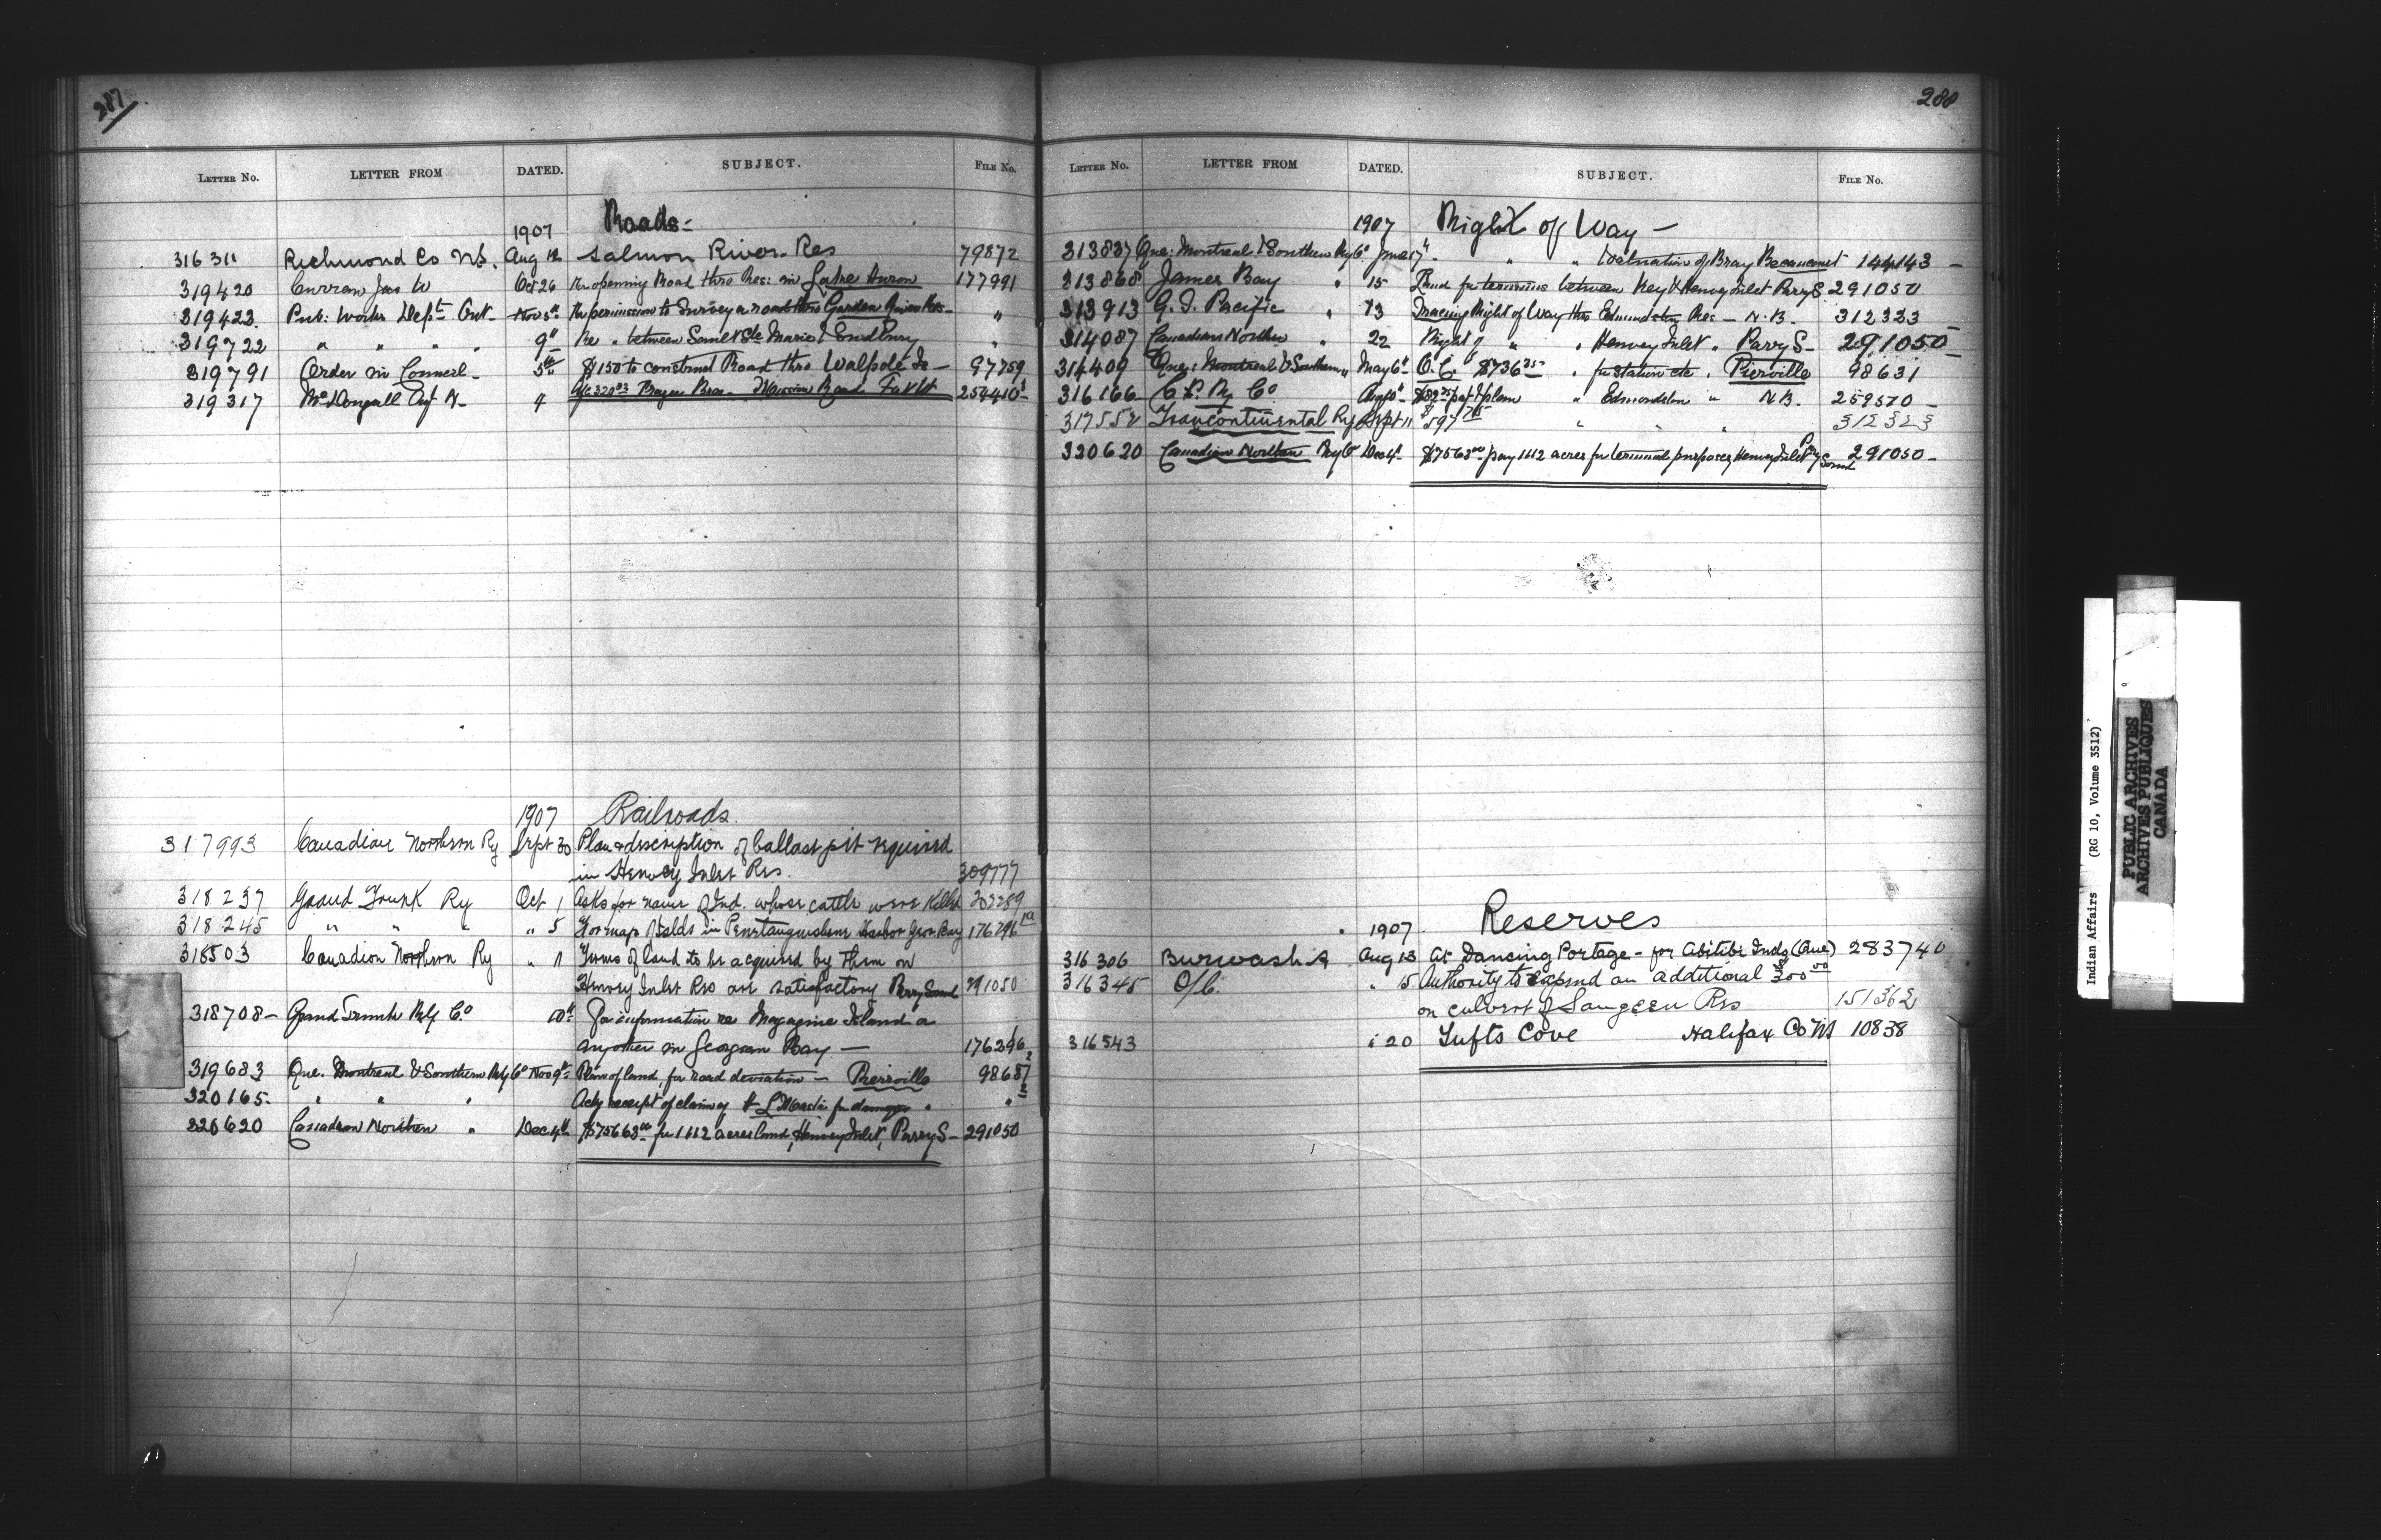 287
LETTER NO. LETTER FROM DATED. SUBJECT. FILE NO.
1907 Roads-
316311 Richmond Co N.S. Aug 12 Salmon River Res 79872
319420 Curran Jas W Oct 26 Re opening Road thro Res: in Lake Huron 177991
319423 Pub: Works Dept Ont- Nov 5th Re permission to survey a road thro Garden River Res- "
319722 " " " " 9" Re " between Sault Ste Marie & Sudbury "
319791 Order in Council- 5th $150 to construct Road thro Walpole Is- 97759
319317 McDougall Agt N- 4 a/c 320.03 Bros- Mission Road 254410
1907 Railroads.
317993 Canadian Northern Ry Sept 30 Plan & description of ballast pit required
in Henvey Inlet Res. 309777
318237 Grand Trunk Ry Oct 1 Asks for name of Ind. whose cattle were killed 303289
318245 " " " " 5 For map Islds in Penetanguishene Harbor Geor Bay 176296
318503 Canadian Northern Ry " 11 Terms of land to be acquired by them on
Henvey Inlet Res are satisfactory Parry Sound 291050
318708- Grand Trunk Rly Co 10th For information re Magazine Island &
another in Georgian Bay- 176296
319683 Que. Montreal & Southern Rly Co Nov 9th Plan of land, for road deviation- Pierreville 98657
320165- " " " Ackg receipt of claim of for damages " "
320620 Canadian Northern " Dec 4th $7563.00 for 1112 acres land, Henvey Inlet, Parry S- 291050
288
LETTER NO. LETTER FROM DATED. SUBJECT. FILE NO.
1907 Right of Way-
313837 Que: Montreal & Southern Ry Co June 17" " " Valuation of Bray Becancourt 144143-
313868 James Bay " 15 Land for terminus between Key & Henvey Inlet Parry S. 291050
313913 G. T. Pacific " 13 Tracing Right of Way thro Edmundston Res- N.B. 312323
314087 Canadian Northern " 22 Right of " " Henvey Inlet " Parry S- 291050
314409 Que: Montreal & Southern " May 6th O.C. $736.35 " for station etc. Pierville 98631
316166 C. P. Ry Co Aug 10" pat & plan " Edmondston " N.B. 259570-
317552 Transcontinental Ry Sept 11 $597 " " " 312323
320620 Canadian Northern Ry Co Dec 4th $7563.00 pay 1112 acres for terminal purposes, Henvey Inlet Pry Sound 291050-
1907 Reserves
316306 Burwash A Aug 13 At Dancing Portage- for Abitibi Inds (Que) 283740
316345 O/C. " 15 Authority to expend an additional 300.00
on culvert of Saugeen Res 151362
316543 " 20 Tufts Cove Halifax Co NS 10838
Indian Affairs (RG 10, Volume 3512)
PUBLIC ARCHIVES
ARCHIVES PUBLIQUES
CANADA